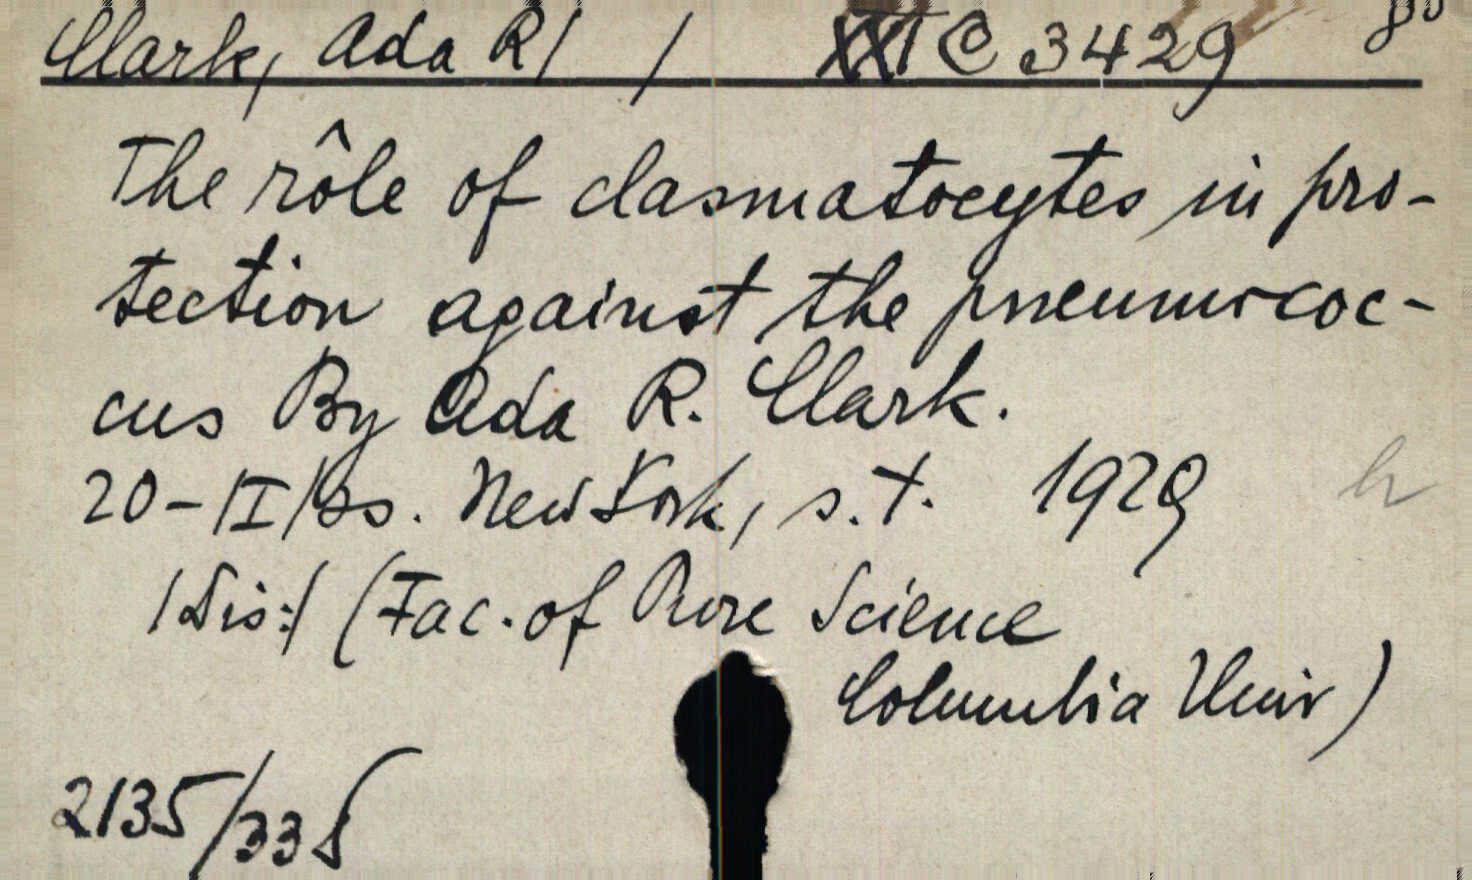 Clark, Ada R/ / XXI C 3429 8º
The rôle of clasmatocytes in pro-
tection against the pneumococ-
cus By Ada R. Clark.
20-/I/ss. New York, s.t. 1929 h
/Dis:/ (Fac. of Pure Science
Columbia Univ)
2135/33